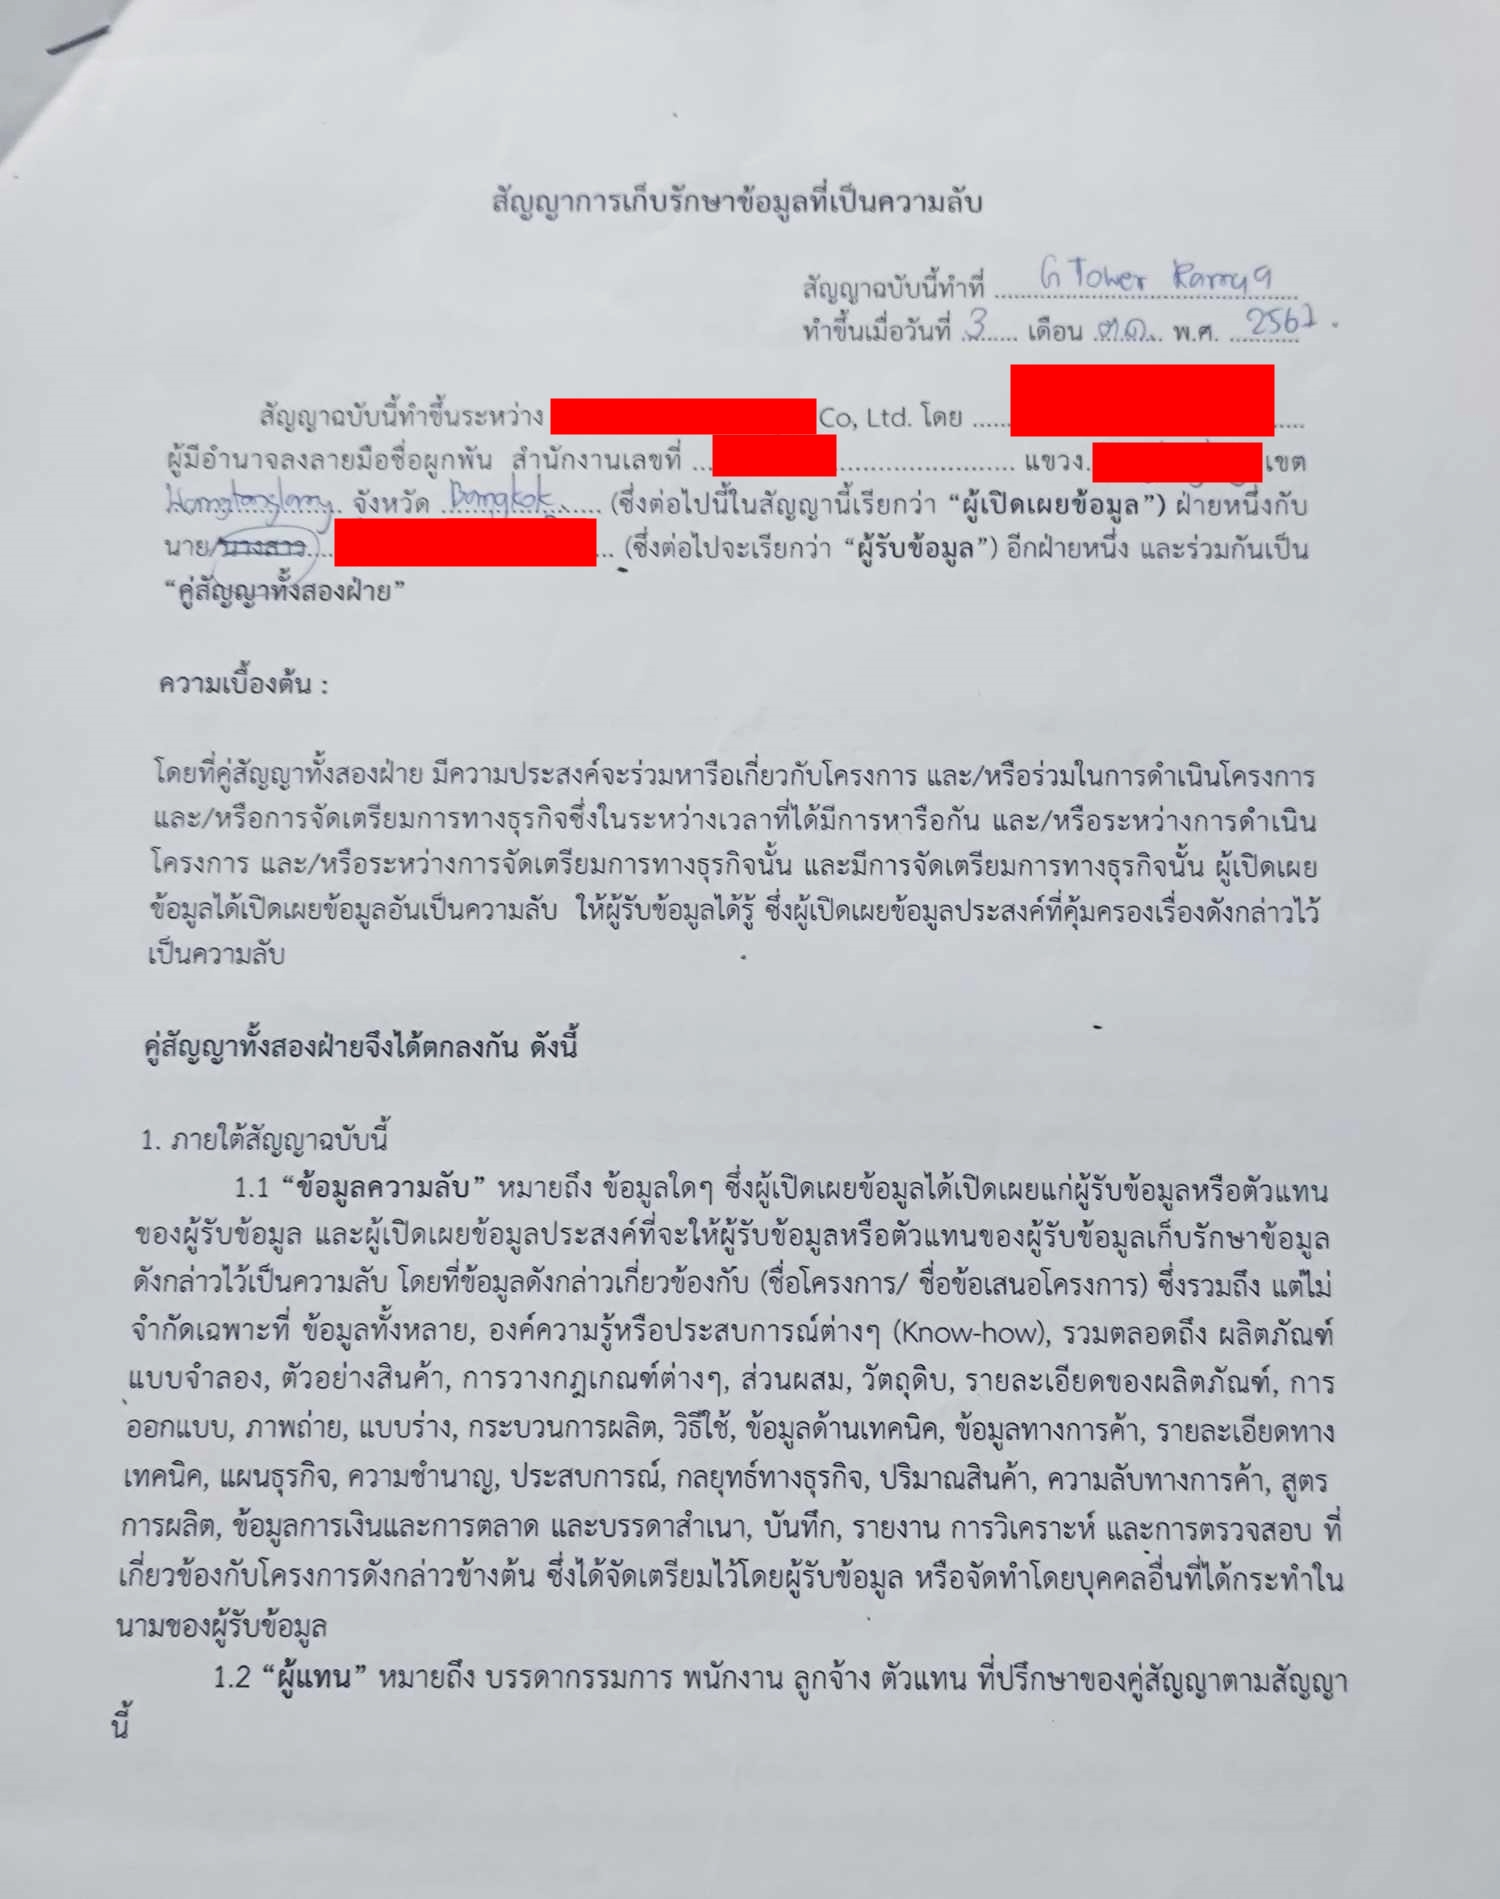 สัญญาการเก็บรักษาข้อมูลที่เป็นความลับ
สัญญาฉบับนี้ทำที่ G Tower Rama 9
ทำขึ้นเมื่อวันที่ 3 เดือน ต.ค. พ.ศ. 2567
สัญญาฉบับนี้ทำขึ้นระหว่าง Co, Ltd. โดย
ผู้มีอำนาจลงลายมือชื่อผูกพัน สำนักงานเลขที่ แขวง. เขต
จังหวัด Bangkok (ซึ่งต่อไปนี้ในสัญญานี้เรียกว่า “ผู้เปิดเผยข้อมูล”) ฝ่ายหนึ่งกับ
นาย/นางสาว (ซึ่งต่อไปจะเรียกว่า “ผู้รับข้อมูล”) อีกฝ่ายหนึ่ง และร่วมกันเป็น
“คู่สัญญาทั้งสองฝ่าย”
ความเบื้องต้น :
โดยที่คู่สัญญาทั้งสองฝ่าย มีความประสงค์จะร่วมหารือเกี่ยวกับโครงการ และ/หรือร่วมในการดำเนินโครงการ
และ/หรือการจัดเตรียมการทางธุรกิจซึ่งในระหว่างเวลาที่ได้มีการหารือกัน และ/หรือระหว่างการดำเนิน
โครงการ และ/หรือระหว่างการจัดเตรียมการทางธุรกิจนั้น และมีการจัดเตรียมการทางธุรกิจนั้น ผู้เปิดเผย
ข้อมูลได้เปิดเผยข้อมูลอันเป็นความลับ ให้ผู้รับข้อมูลได้รู้ ซึ่งผู้เปิดเผยข้อมูลประสงค์ที่คุ้มครองเรื่องดังกล่าวไว้
เป็นความลับ
คู่สัญญาทั้งสองฝ่ายจึงได้ตกลงกัน ดังนี้
1. ภายใต้สัญญาฉบับนี้
1.1 “ข้อมูลความลับ” หมายถึง ข้อมูลใดๆ ซึ่งผู้เปิดเผยข้อมูลได้เปิดเผยแก่ผู้รับข้อมูลหรือตัวแทน
ของผู้รับข้อมูล และผู้เปิดเผยข้อมูลประสงค์ที่จะให้ผู้รับข้อมูลหรือตัวแทนของผู้รับข้อมูลเก็บรักษาข้อมูล
ดังกล่าวไว้เป็นความลับ โดยที่ข้อมูลดังกล่าวเกี่ยวข้องกับ (ชื่อโครงการ/ ชื่อข้อเสนอโครงการ) ซึ่งรวมถึง แต่ไม่
จำกัดเฉพาะที่ ข้อมูลทั้งหลาย, องค์ความรู้หรือประสบการณ์ต่างๆ (Know-how), รวมตลอดถึง ผลิตภัณฑ์
แบบจำลอง, ตัวอย่างสินค้า, การวางกฎเกณฑ์ต่างๆ, ส่วนผสม, วัตถุดิบ, รายละเอียดของผลิตภัณฑ์, การ
ออกแบบ, ภาพถ่าย, แบบร่าง, กระบวนการผลิต, วิธีใช้, ข้อมูลด้านเทคนิค, ข้อมูลทางการค้า, รายละเอียดทาง
เทคนิค, แผนธุรกิจ, ความชำนาญ, ประสบการณ์, กลยุทธ์ทางธุรกิจ, ปริมาณสินค้า, ความลับทางการค้า, สูตร
การผลิต, ข้อมูลการเงินและการตลาด และบรรดาสำเนา, บันทึก, รายงาน การวิเคราะห์ และการตรวจสอบ ที่
เกี่ยวข้องกับโครงการดังกล่าวข้างต้น ซึ่งได้จัดเตรียมไว้โดยผู้รับข้อมูล หรือจัดทำโดยบุคคลอื่นที่ได้กระทำใน
นามของผู้รับข้อมูล
1.2 “ผู้แทน” หมายถึง บรรดากรรมการ พนักงาน ลูกจ้าง ตัวแทน ที่ปรึกษาของคู่สัญญาตามสัญญา
นี้